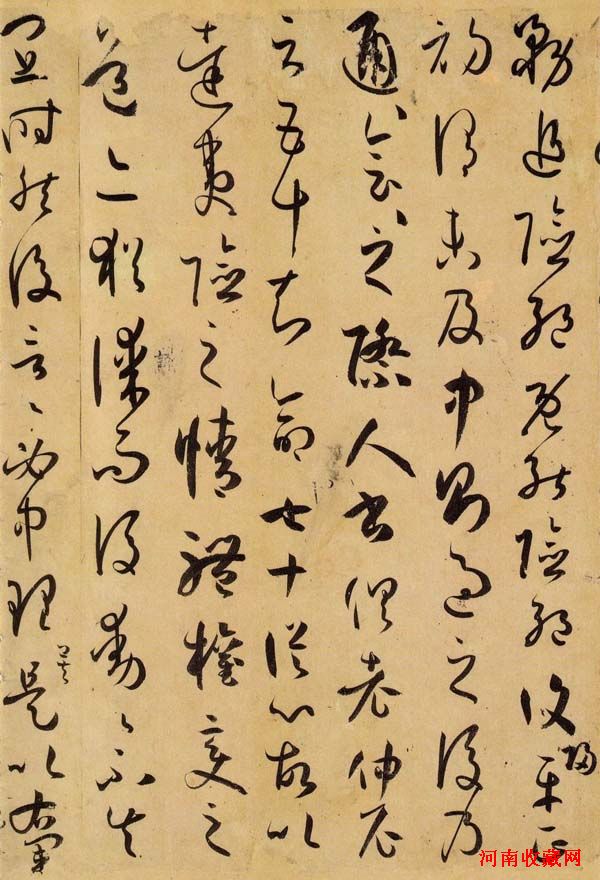 務追險絕既能險絕復歸平正
初謂未及中則過之後乃
通〻會〻之際人書俱老仲尼
云五十知命七十從心故以
達夷險之情體權變之
道亦猶謀而後動〻不失
宜時然後言〻必中理矣是以右軍
河南收藏网